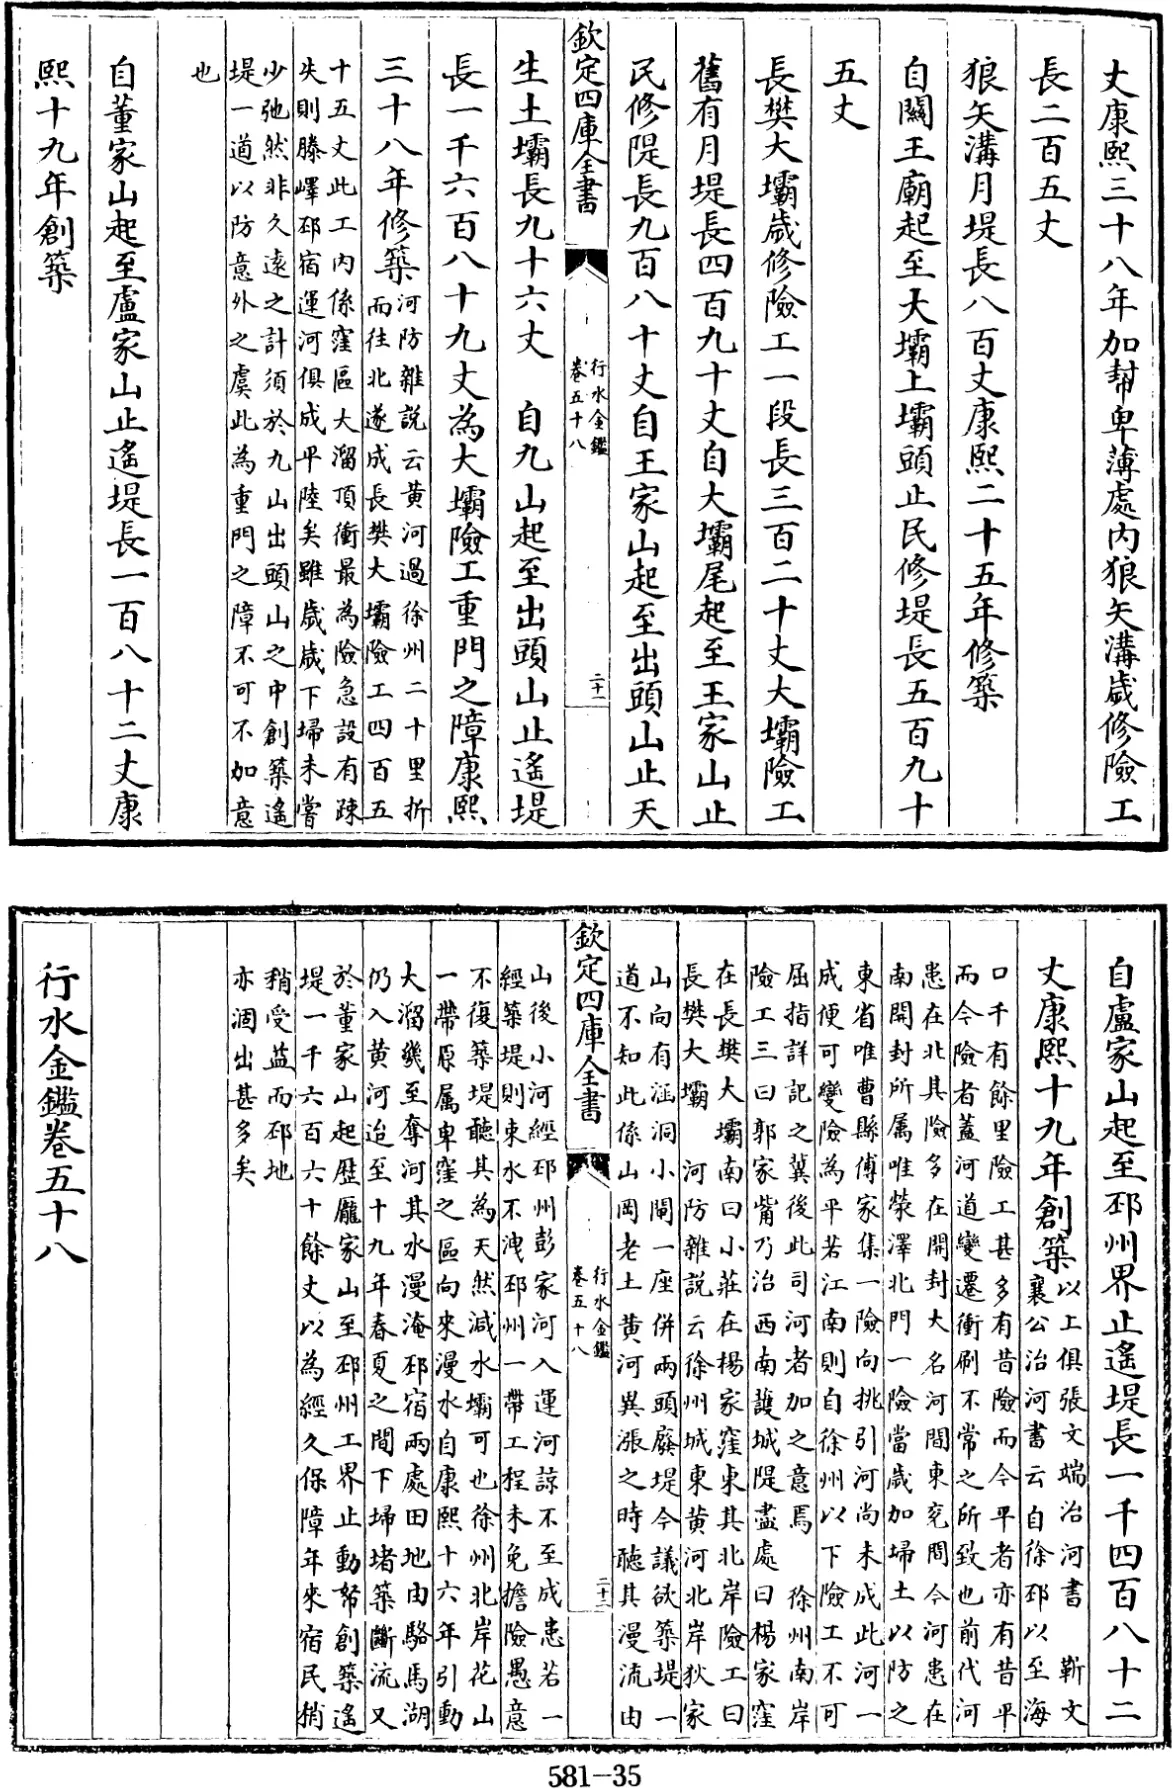 丈康熙三十八年加幫卑薄處內狼矢溝歲修險工
長二百五丈
狼矢溝月堤長八百丈康熙二十五年修築
自關王廟起至大壩上壩頭止民修堤長五百九十
五丈
長樊大壩歲修險工一段長三百二十丈大壩險工
舊有月堤長四百九十丈自大壩尾起至王家山止
民修隄長九百八十丈自王家山起至出頭山止天
欽定四庫全書
行水金鑑
卷五十八
二十一
生土壩長九十六丈 自九山起至出頭山止遙堤
長一千六百八十九丈為大壩險工重門之障康熙
三十八年修築
河防雜說云黃河過徐州二十里折
而往北遂成長樊大壩險工四百五
十五丈此工內係窪區大溜頂衝最為險急設有疎
失則滕嶧邳宿運河俱成平陸矣雖歲歲下埽未嘗
少弛然非久遠之計須於九山出頭山之中創築遙
堤一道以防意外之虞此為重門之障不可不加意
也
自董家山起至盧家山止遙堤長一百八十二丈康
熙十九年創築
自盧家山起至邳州界止遙堤長一千四百八十二
丈康熙十九年創築
以上俱張文端治河書 靳文
襄公治河書云自徐邳以至海
口千有餘里險工甚多有昔險而今平者亦有昔平
而今險者蓋河道變遷衝刷不常之所致也前代河
患在北其險多在開封大名河間東兗間今河患在
南開封所屬唯滎澤北門一險當歲加埽土以防之
東省唯曹縣傅家集一險向挑引河尚未成此河一
成便可變險為平若江南則自徐州以下險工不可
屈指詳記之冀後此司河者加之意焉 徐州南岸
險工三曰郭家嘴乃治西南護城隄盡處曰楊家窪
在長樊大壩南曰小莊在楊家窪東其北岸險工曰
長樊大壩 河防雜說云徐州城東黃河北岸狄家
山向有涵洞小閘一座併兩頭廢堤今議欲築堤一
道不知此係山岡老土黃河異漲之時聽其漫流由
欽定四庫全書
行水金鑑
卷五十八
二十二
山後小河經邳州彭家河入運河諒不至成患若一
經築堤則東水不洩邳州一帶工程未免擔險愚意
不復築堤聽其為天然減水壩可也徐州北岸花山
一帶原属卑窪之區向來漫水自康熙十六年引動
大溜幾至奪河其水漫淹邳宿兩處田地由駱馬湖
仍入黃河迨至十九年春夏之間下埽堵築斷流又
於董家山起歷龎家山至邳州工界止動帑創築遙
堤一千六百六十餘丈以為經久保障年來宿民稍
稍受益而邳地
亦涸出甚多矣
行水金鑑卷五十八
581-35